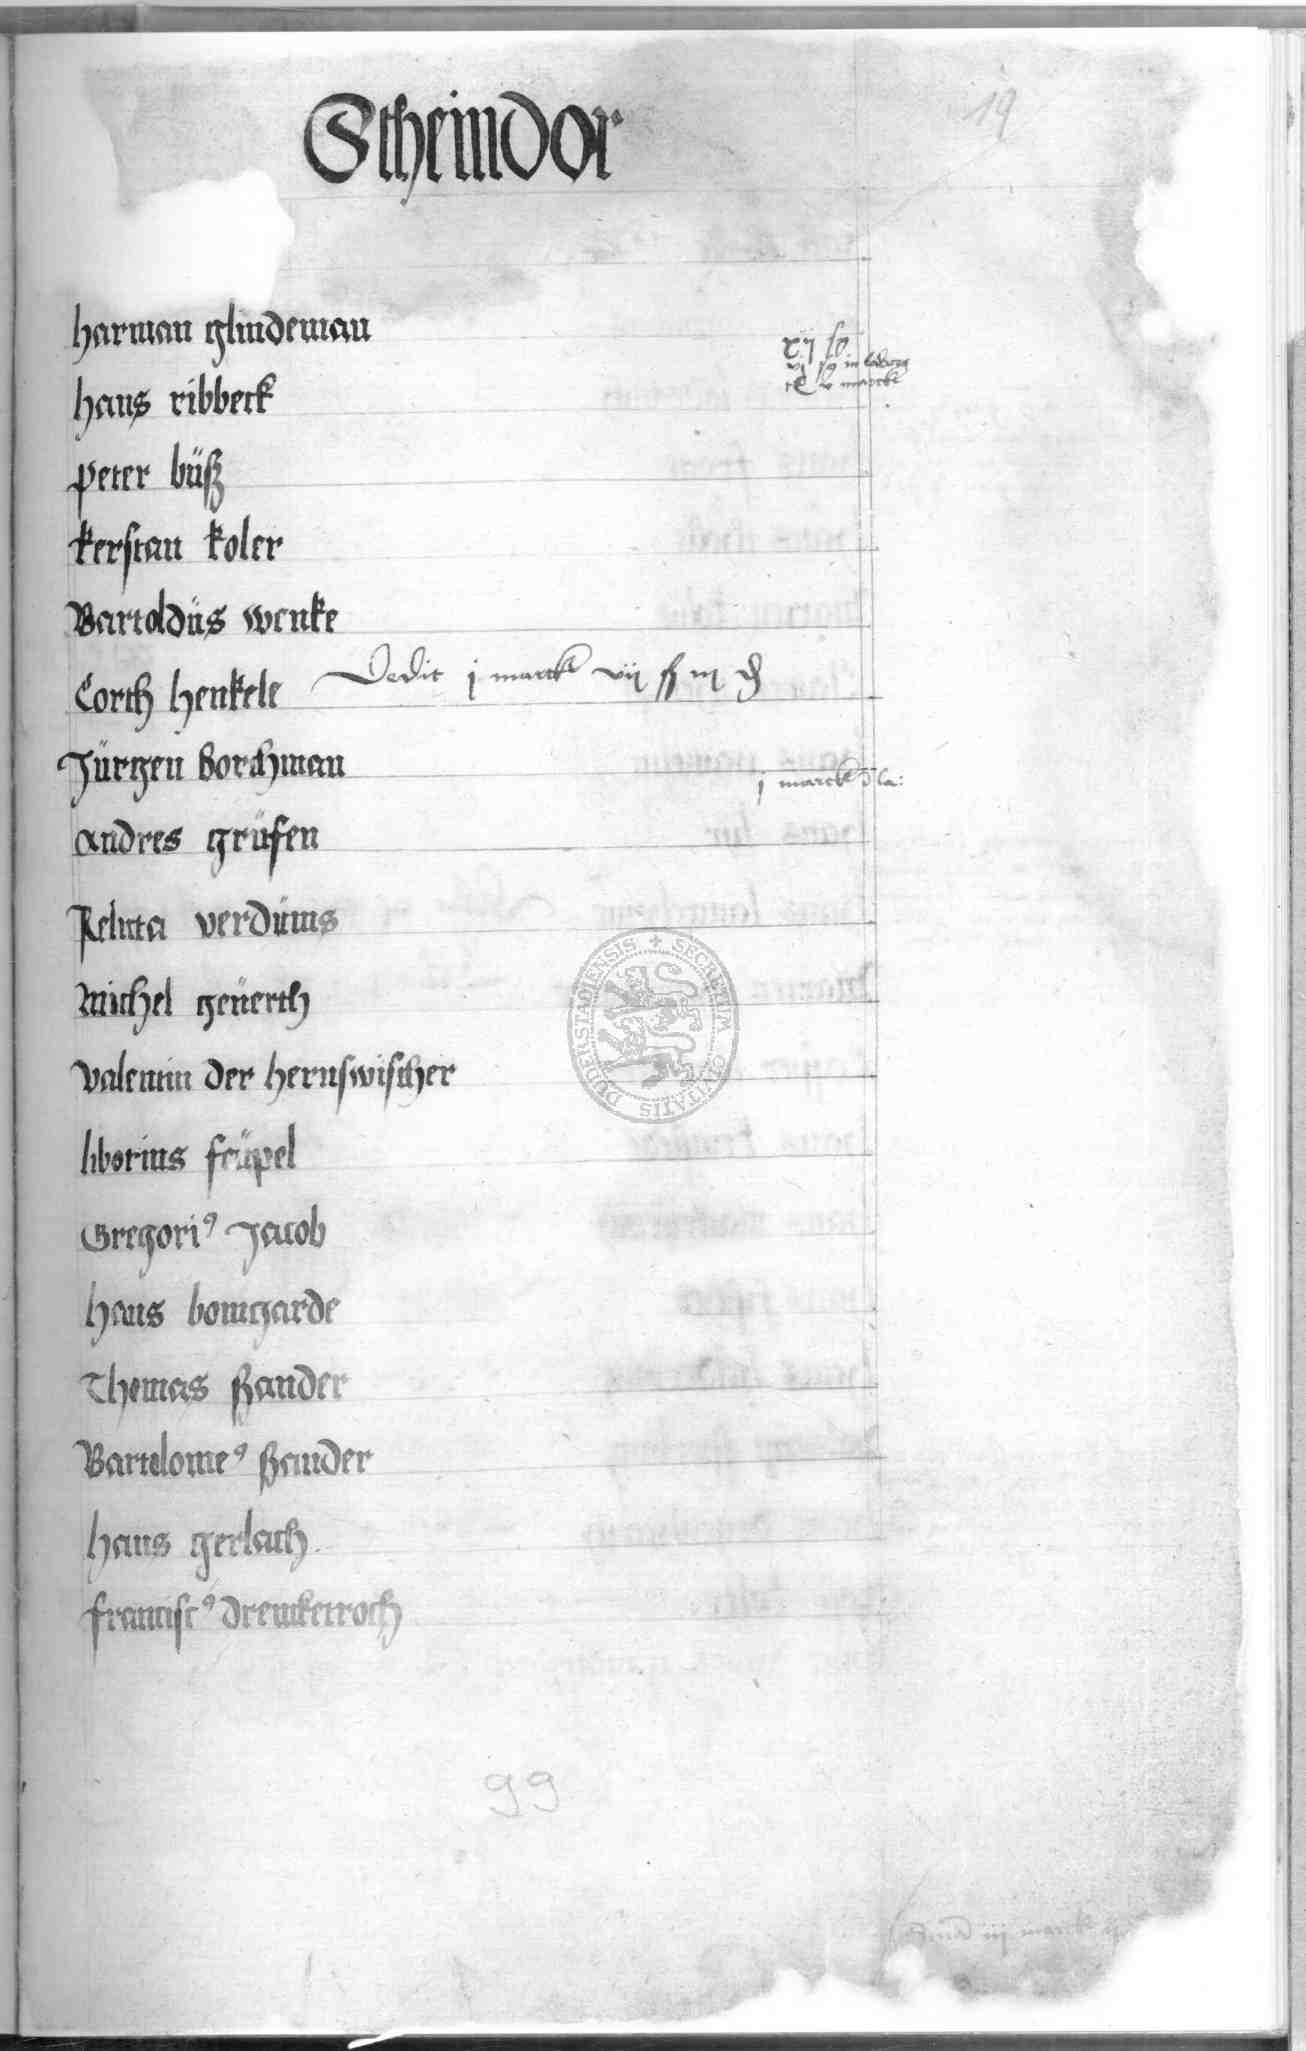 19
Stheindor
harman glindeman
xij ß
vj ß in
v marck
hans ribbeck
peter büß
kerstan koler
Bartoldüs wenke
Corth henkele Dedit j marck vij ß iij d
Jürgen borchman
j marck d la:
andres grüsen
verdüms
Michel geüerth
valentin der hernswischer
liborius scüpel
Gregori⁹ Jacob
hans bomgarde
Thomas ßander
Bartolome⁹ ßander
hans gerlach
francisc⁹ drenckerroch
99
SECRETUM CIVITATIS DUDERSTADIENSIS